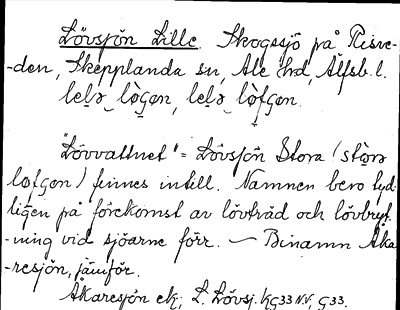 Lövsjön Lille. Skogssjö på Risve-
-den, Skepplanda sn, Ale hrd, Älfsb. l.
lelə lògən, lelə lòfgən.
"Lövvattnet" = Lövsjön Stora (stòrə
lofgən) finnes intill. Namnen bero tyd-
ligen på förekomst av lövträd och lövbryt-
-ning vid sjöarne förr. — Binamn Åka-
-resjön, jämför.
Åkaresjön ek; L. Lövsj. kg33 N.V, G33.